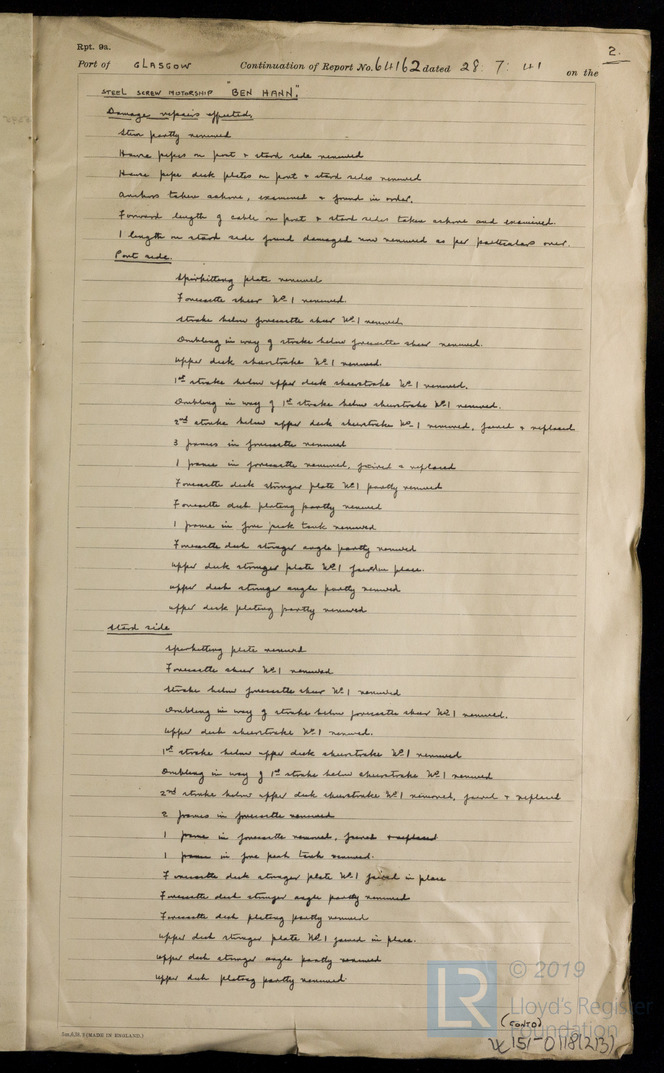 Rpt. 9a.
2.
Port of GLASGOW Continuation of Report No. 64162 dated 28 : 7 : 41 on the
STEEL SCREW MOTORSHIP "BEN HANN."
Damage repairs effected.
Stem partly renewed
Hawse pipes on port & starb side renewed
Hawse pipe deck plates on port & starb sides renewed
Anchors taken ashore, examined & found in order.
Forward length of cable on port & starb sides taken ashore and examined.
1 length on starb side found damaged now renewed as per particulars over.
Port side.
Spirketting plate renewed
Forecastle sheer No. 1 renewed.
Strake below forecastle sheer No. 1 renewed.
Doubling in way of strake below forecastle sheer renewed.
Upper deck sheerstrake No. 1 renewed.
1st strake below upper deck sheerstrake No. 1 renewed.
Doubling in way of 1st strake below sheerstrake No. 1 renewed.
2nd strake below upper deck sheerstrake No. 1 removed, faired & replaced
3 frames in forecastle renewed
1 frame in forecastle removed, faired & replaced
Forecastle deck stringer plate No. 1 partly renewed
Forecastle deck plating partly renewed
1 frame in fore peak tank renewed
Forecastle deck stringer angle partly renewed
Upper deck stringer plate No. 1 faired in place.
Upper deck stringer angle partly renewed
Upper deck plating partly renewed
Starb side
Spirketting plate renewed
Forecastle sheer No. 1 renewed
Strake below forecastle sheer No. 1 renewed
Doubling in way of strake below forecastle sheer No. 1 renewed.
Upper deck sheerstrake No. 1 renewed.
1st strake below upper deck sheerstrake No. 1 renewed
Doubling in way of 1st strake below sheerstrake No. 1 renewed
2nd strake below upper deck sheerstrake No. 1 removed, faired & replaced
2 frames in forecastle renewed
1 frame in forecastle removed, faired & replaced
1 frame in fore peak tank renewed.
Forecastle deck stringer plate No. 1 faired in place
Forecastle deck stringer angle partly renewed
Forecastle deck plating partly renewed
Upper deck stringer plate No. 1 faired in place.
Upper deck stringer angle partly renewed
Upper deck plating partly renewed
© 2019
LR Lloyd's Register
Foundation
(CONTD)
(MADE IN ENGLAND.)